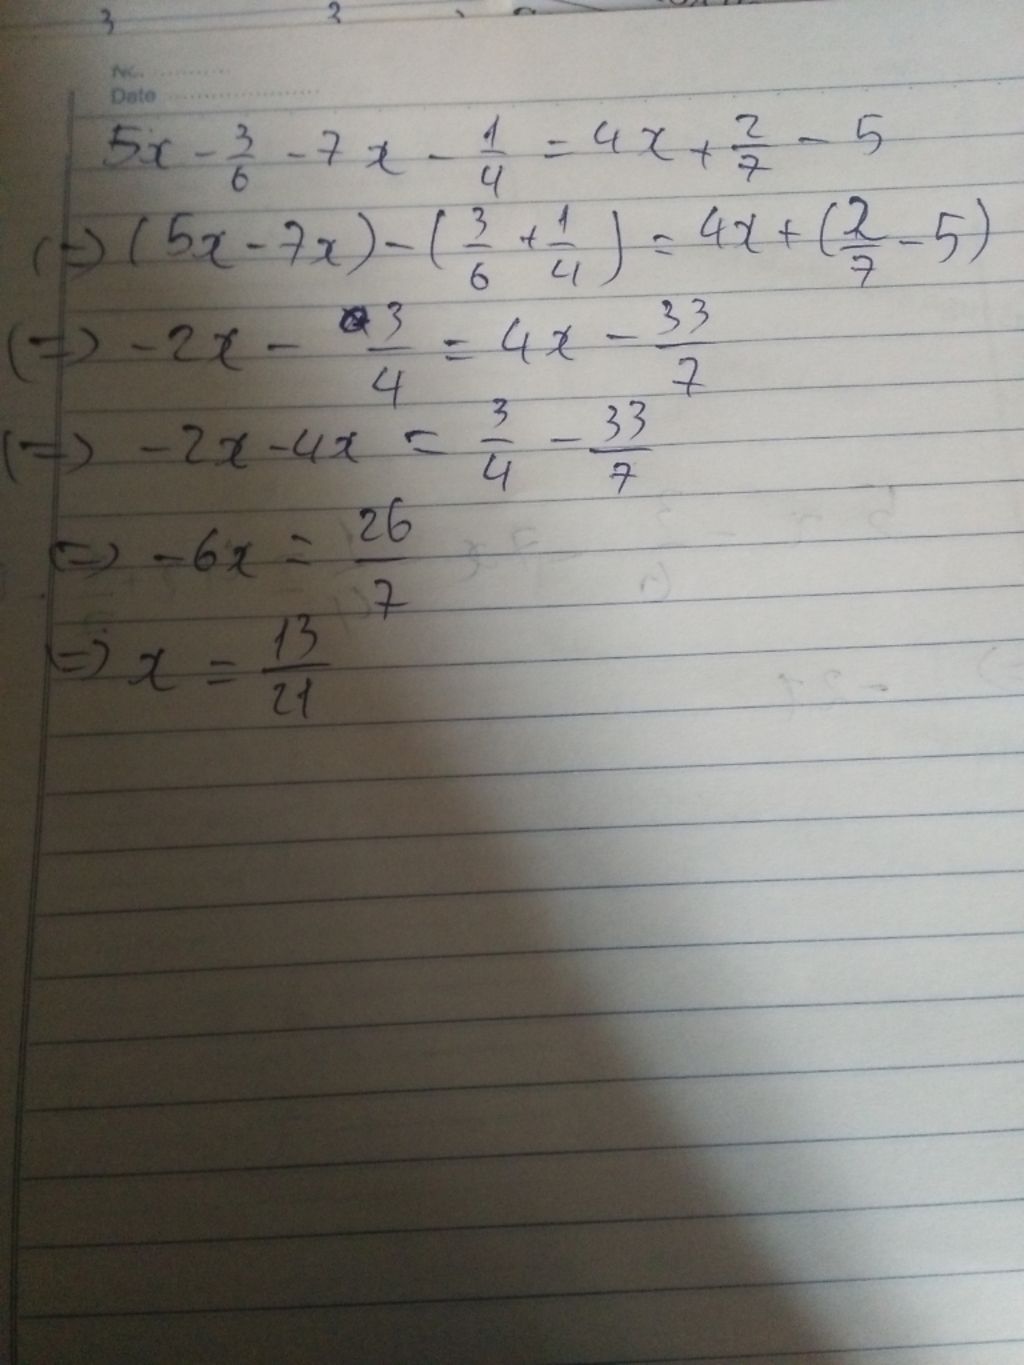 3 3
No.
Date
5x - 3/6 - 7x - 1/4 = 4x + 2/7 - 5
(=) (5x - 7x) - (3/6 + 1/4) = 4x + (2/7 - 5)
(=) -2x - 3/4 = 4x - 33/7
(=) -2x - 4x = 3/4 - 33/7
(=) -6x = 26/7
=) x = 13/21